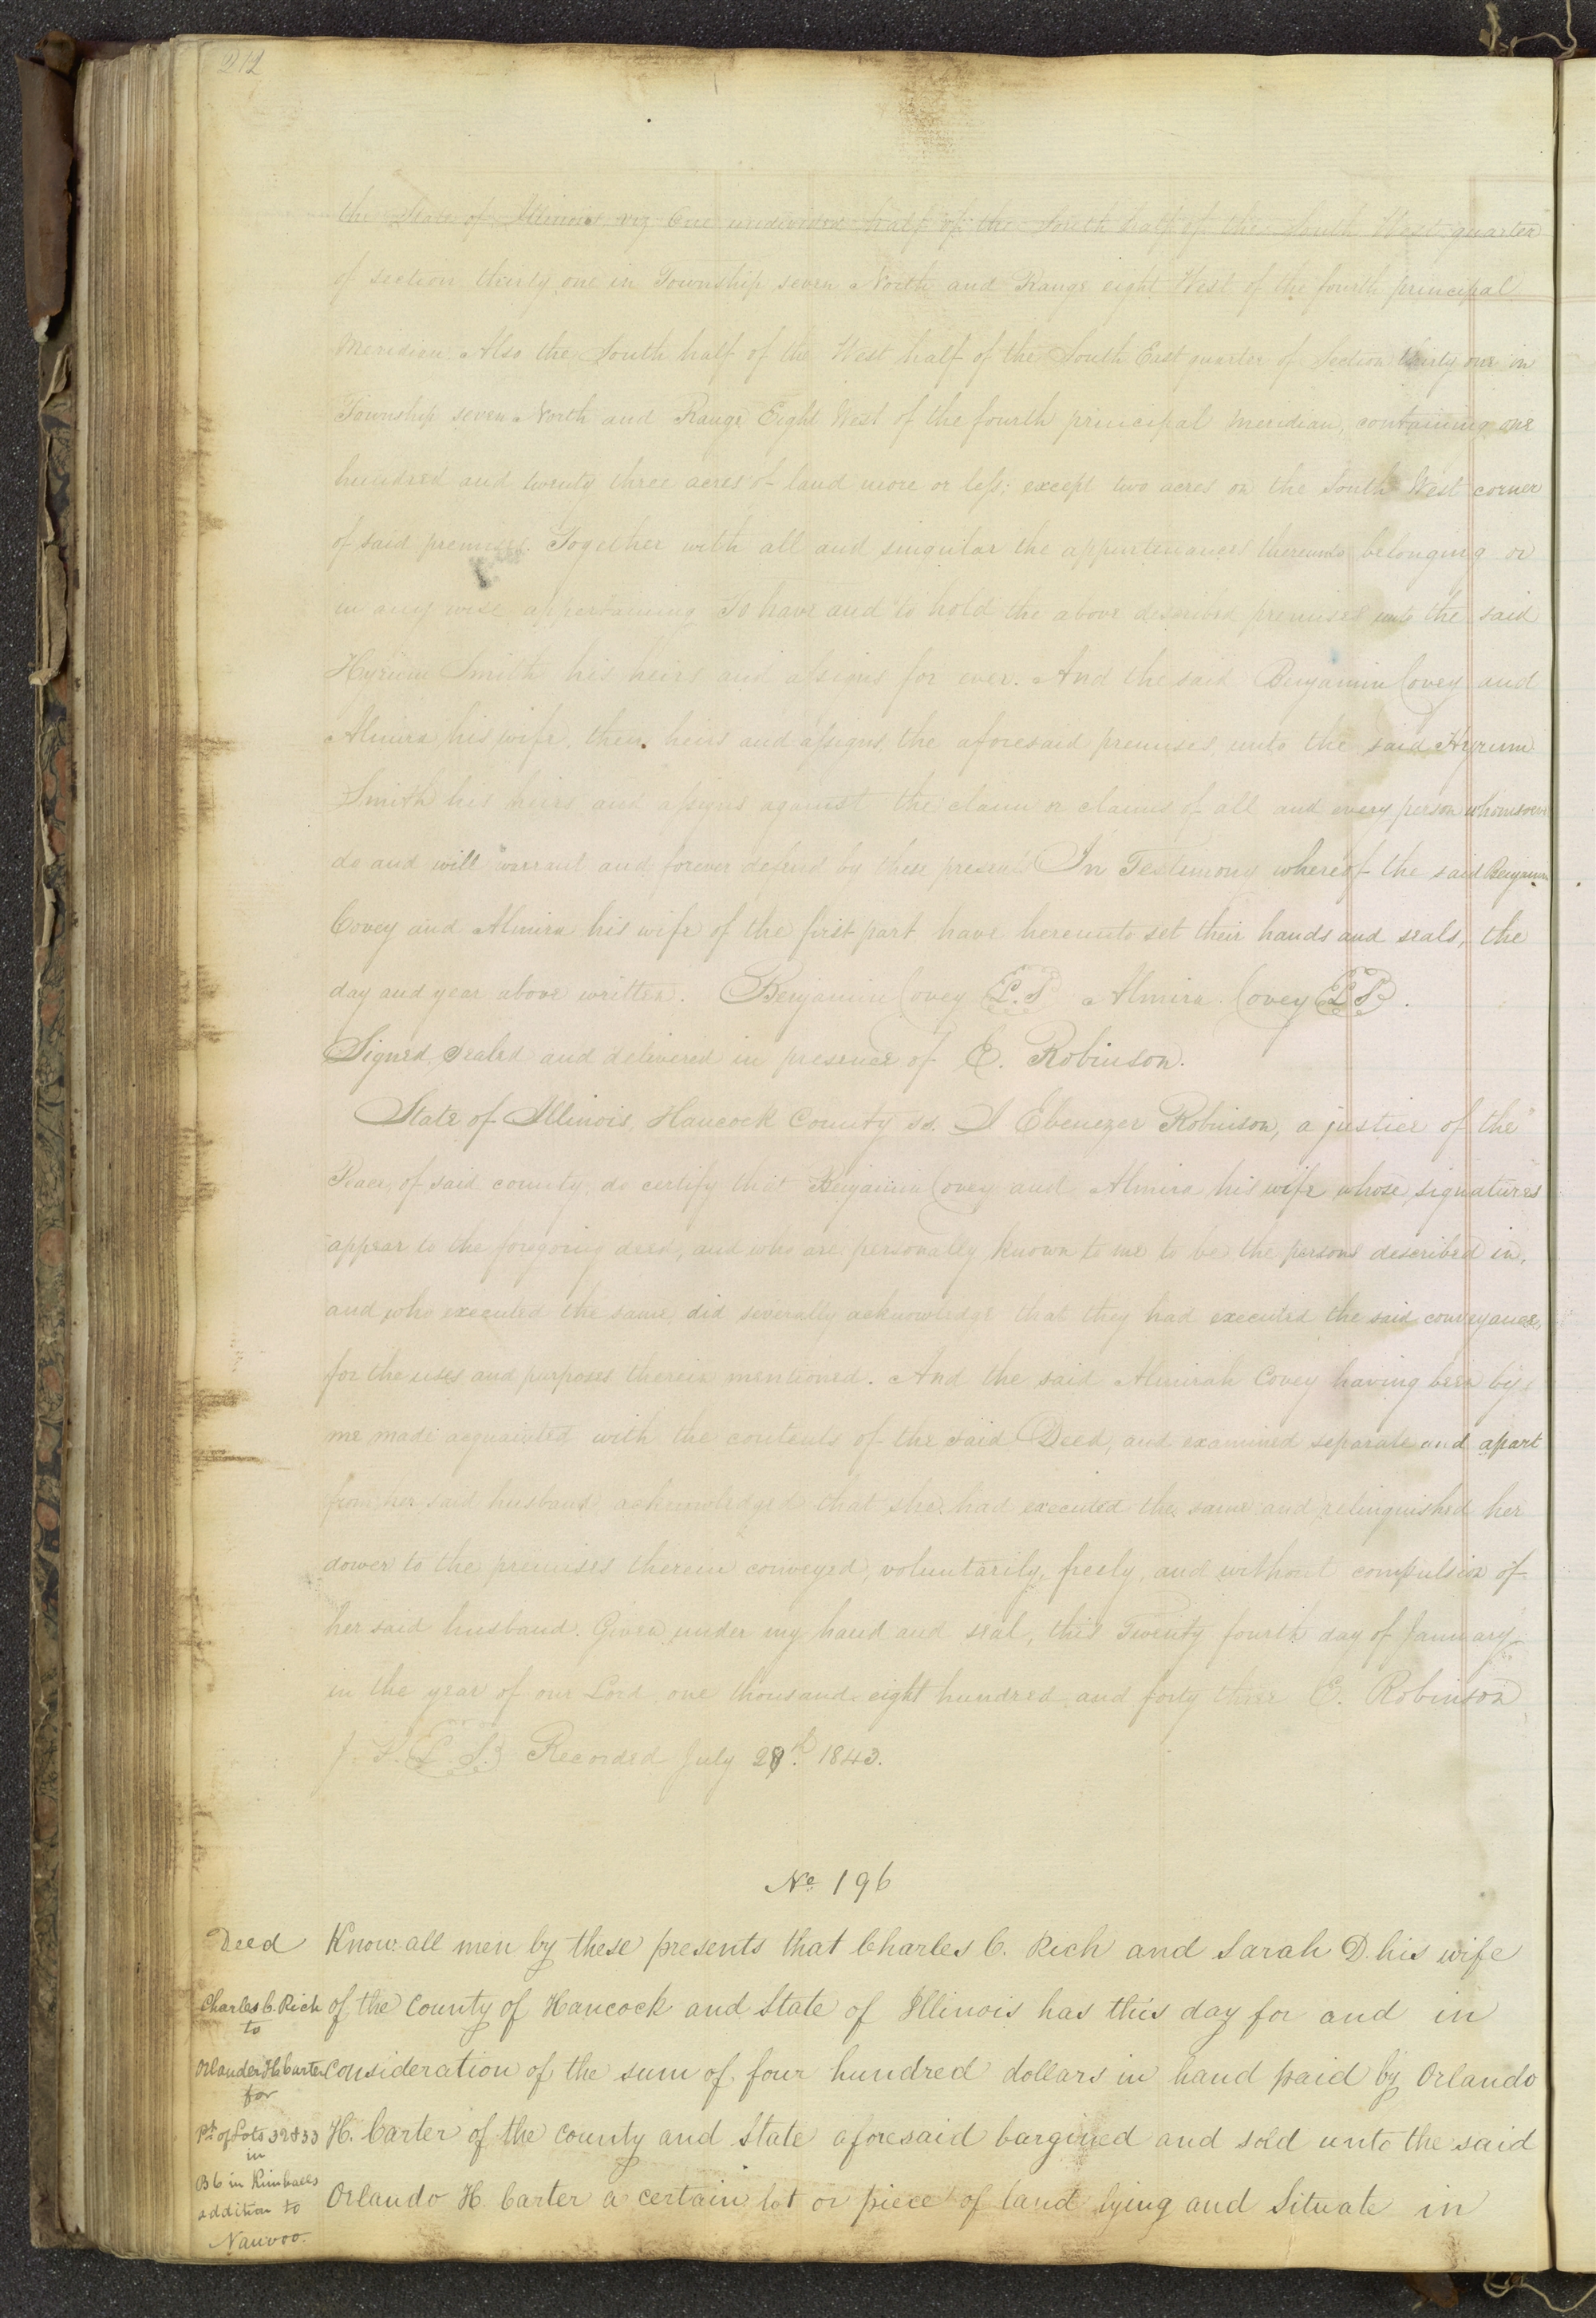 212
the State of Illinois, viz One undivided half of the South half of the South West quarter
of section thirty one in Township seven North and Range eight West of the fourth principal
Meridian. Also the South half of the West half of the South East quarter of Section thirty one in
Township seven North and Range Eight West of the fourth principal meridian, containing one
hundred and twenty three acres of land more or less; except two acres on the South West corner
of said premises. Together with all and singular the appurtenances thereunto belonging or
in any wise appertaining To have and to hold the above described premises unto the said
Hyrum Smith his heirs and assigns for ever. And the said Benjamin Covey and
Almira his wife, their heirs and assigns, the aforesaid premises, unto the said Hyrum
Smith his heirs and assigns against the claim or claims of all and every person whomsoever
do and will warrant and forever defend by these presents In Testimony whereof the said Benjamin
Covey and Almira his wife of the first part have hereunto set their hands and seals, the
day and year above written. Benjamin Covey L.S Almira Covey L S.
Signed, Sealed and delivered in presence of E. Robinson.
State of Illinois, Hancock County ss. I Ebenezer Robinson, a justice of the
Peace, of said county, do certify that Benjamin Covey and Almira his wife whose signatures
appear to the foregoing deed, and who are personally known to me to be the persons described in,
and who executed the same did severally acknowledge that they had executed the said conveyance,
for the uses and purposes therein mentioned. And the said Almirah Covey having been by
me made acquainted with the contents of the said Deed, and examined separate and apart
from her said husband acknowledged that she had executed the same and relinquished her
dower to the premises therein conveyed, voluntarily, freely, and without compulsion of
her said husband. Given under my hand and seal, this Twenty fourth day of January
in the year of our Lord one thousand eight hundred and forty three E. Robinson
J. P. L. S. Recorded July 28th 1843.
No 196
Deed Know all men by these presents that Charles C. Rich and Sarah D. his wife
Charles C. Rich of the County of Hancock and State of Illinois has this day for and in
to
Orlander H Carter Consideration of the sum of four hundred dollars in hand paid by Orlando
for
Pt of Lots 32 & 33 H. Carter of the County and State aforesaid bargined and sold unto the said
in
B 6 in Kimballs
addition to Orlando H. Carter a certain lot or piece of land lying and Situate in
Nauvoo.